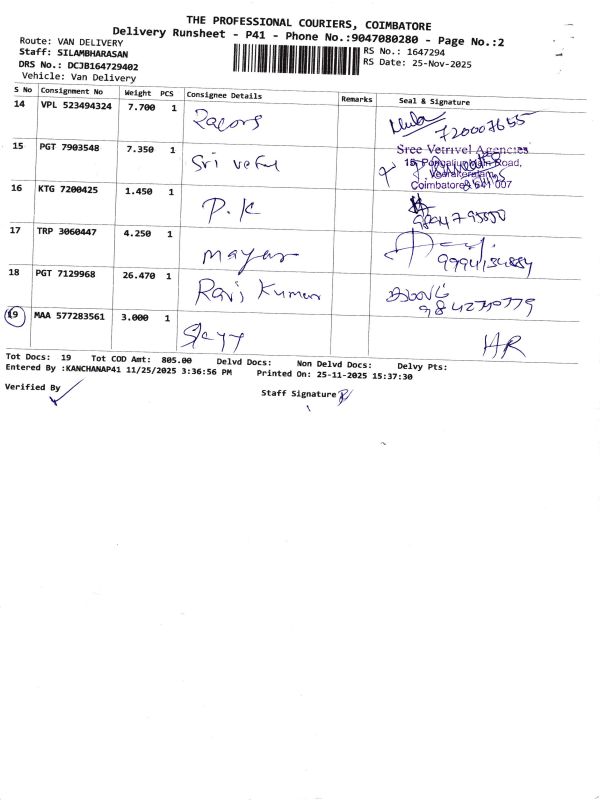 THE PROFESSIONAL COURIERS, COIMBATORE
Delivery Runsheet - P41 - Phone No.:9047080280 - Page No.:2
Route: VAN DELIVERY
Staff: SILAMBHARASAN
DRS No.: DCJB164729402
Vehicle: Van Delivery
RS No.: 1647294
RS Date: 25-Nov-2025
S No Consignment No Weight PCS Consignee Details Remarks Seal & Signature
14 VPL 523494324 7.700 1
720007655
15 PGT 7903548 7.350 1 Sri
Sree Vetrivel Agencies
Road,
Coimbatore - 641 007
16 KTG 7200425 1.450 1 P.K
17 TRP 3060447 4.250 1
18 PGT 7129968 26.470 1 Ravi Kumar
19 MAA 577283561 3.000 1
Tot Docs: 19 Tot COD Amt: 805.00 Delvd Docs: Non Delvd Docs: Delvy Pts:
Entered By :KANCHANAP41 11/25/2025 3:36:56 PM Printed On: 25-11-2025 15:37:30
Verified By
Staff Signature